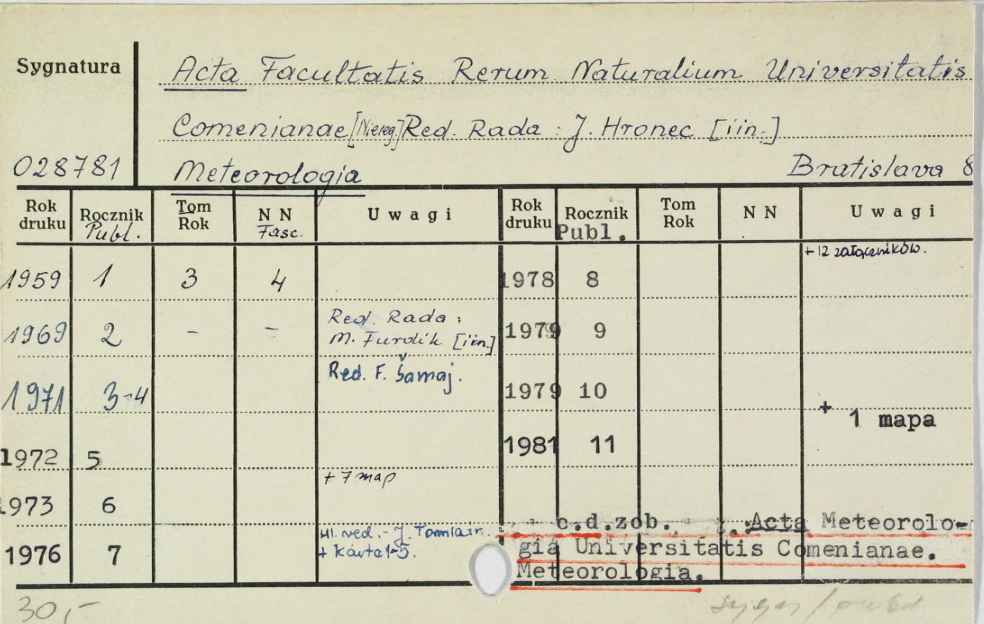 Sygnatura
Acta Facultatis Rerum Naturalium Universitatis
Comenianae [Niereg.] Red. Rada : J. Hronec [i in.]
028781 Meteorologia Bratislava 8
Rok druku Rocznik Publ. Tom Rok NN Fasc. Uwagi Rok druku Rocznik Publ. Tom Rok NN Uwagi
1959 1 3 4 1978 8 + 12 załączników.
1969 2 - - Red. Rada : 1979 9
M. Furdík [i in.]
1971 3-4 Red. F. Šamaj. 1979 10
+ 1 mapa
1972 5 1981 11
1973 6 + 7 map
1976 7 Hl. red. - J. Tomlain. c.d.zob. Acta Meteorolo-
+ karta 1-5. gia Universitatis Comenianae.
Meteorologia.
30,-